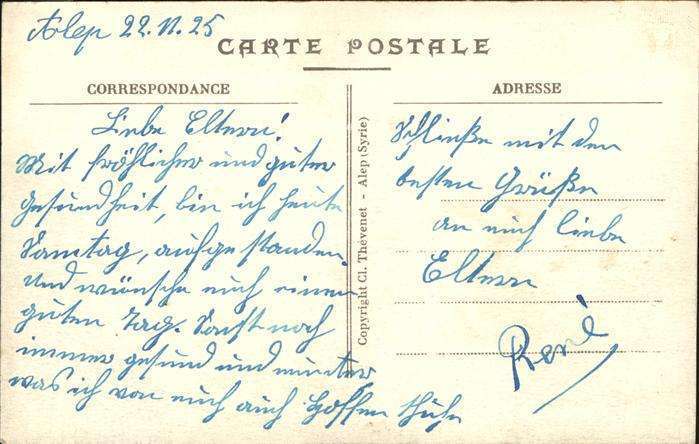 Alep 22.11.25
CARTE POSTALE
CORRESPONDANCE
ADRESSE
Liebe Eltern!
Mit fröhlicher und guter
Gesundheit, bin ich heute
Samtag, aufgestanden.
Und wünsche euch einen
guten Tag. Sonst noch
immer gesund und munter
was ich von euch auch hoffen thuhe
Copyright Cl. Thévenet - Alep (Syrie)
Schließe mit den
besten Grüßen
an euch liebe
Eltern
René